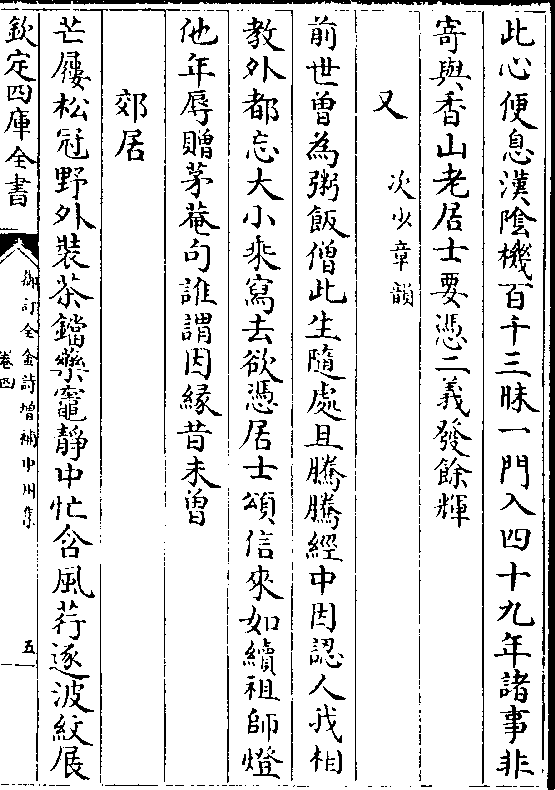 此心便息漢陰機百千三昧一門入四十九年諸事非
寄與香山老居士要憑二義發餘輝
又　次少章韻
前世曾為粥飯僧此生隨處且騰騰經中因認人我相
教外都忘大小乘寫去欲憑居士頌信來如續祖師燈
他年辱贈茅菴句誰謂因緣昔未曾
郊居
芒屨松冠野外裝茶鐺藥竈靜中忙含風荇逐波紋展
欽定四庫全書
御訂全金詩增補中州集
卷四
五